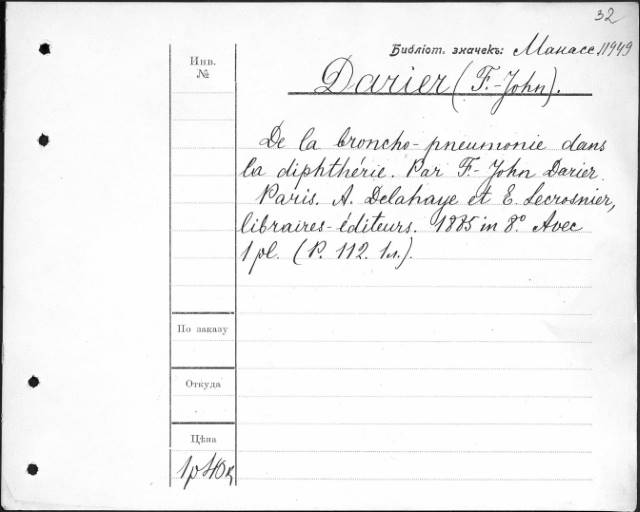 32
Библіот. значекъ: Манасс. 11949
Инв.
№
Darier (F.-John).
De la broncho-pneumonie dans
la diphthérie. Par F.-John Darier.
Paris. A. Delahaye et E. Lecrosnier,
libraires-éditeurs. 1885 in 8º Avec
1 pl. (P. 112. 1 л.).
По заказу
Откуда
Цѣна
1 р 40 к